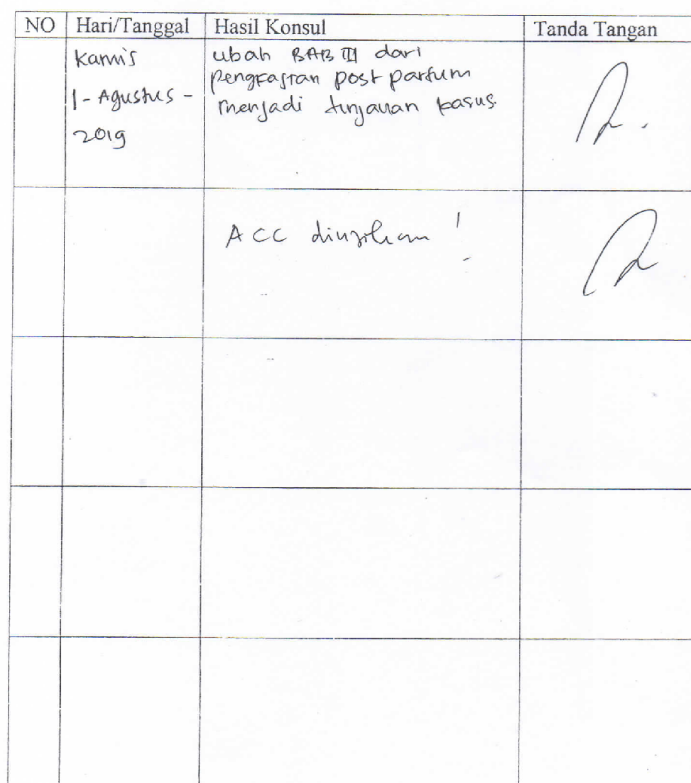 NO Hari/Tanggal Hasil Konsul Tanda Tangan
Kamis
1-Agustus-
2019
ubah BAB III dari
pengkajian post partum
menjadi tinjauan kasus
ACC diujikan !